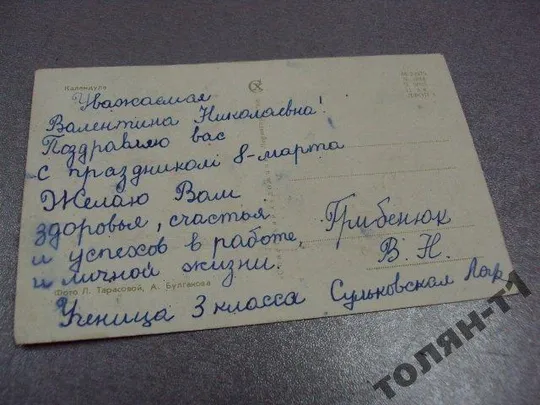 Календула
Уважаемая
Валентина Николаевна!
Поздравляю вас
с праздником 8-марта
Желаю Вам
здоровья, счастья
и успехов в работе,
и личной жизни.
Грибенюк
В. Н.
Фото Л. Тарасовой, А. Булгакова
Ученица 3 класса Сульковская Лар
ТОЛЯН-Т1